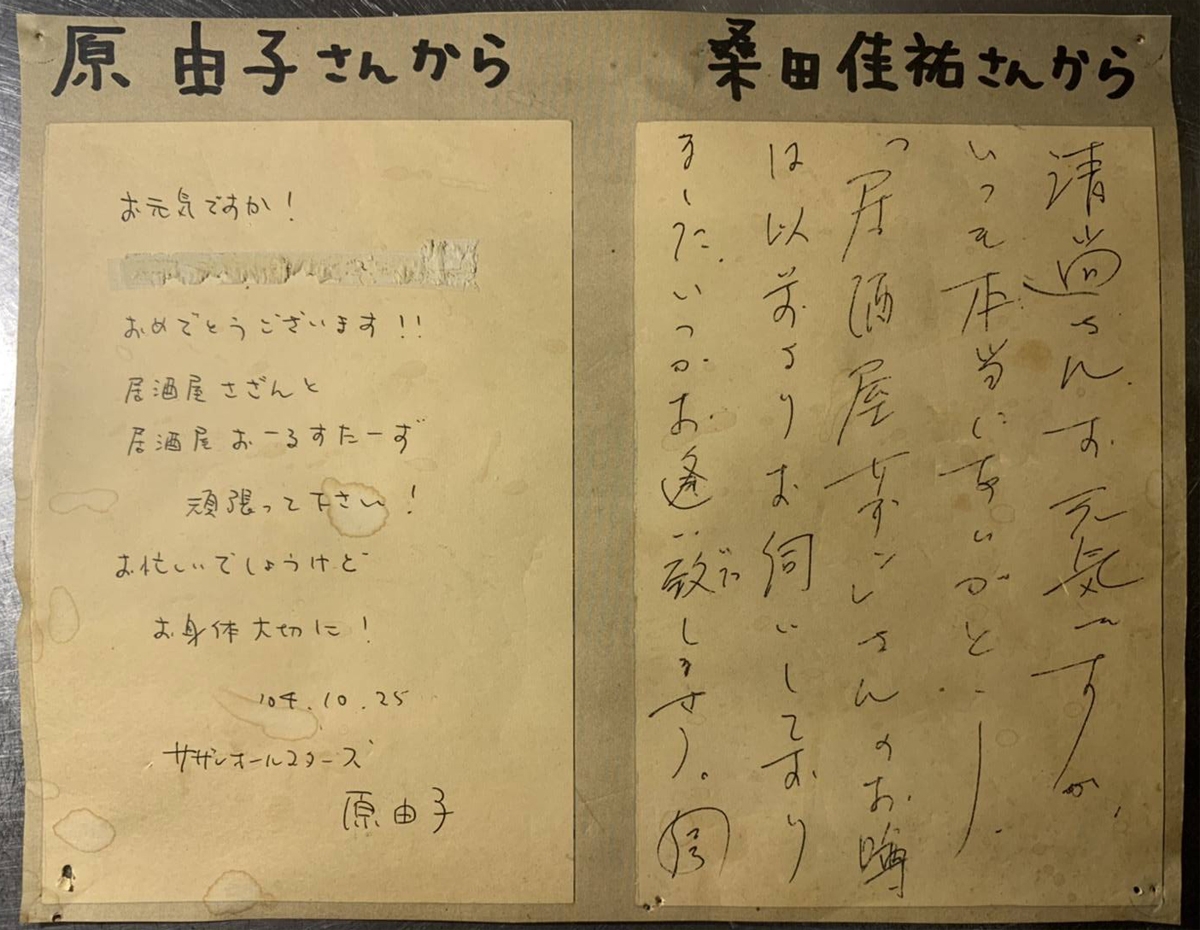 原 由子さんから
お元気ですか！
おめでとうございます!!
居酒屋さざんと
居酒屋おーるすたーず
頑張って下さい！
お忙しいでしょうけど
お身体大切に！
'04.10.25
サザンオールスターズ
原由子
桑田佳祐さんから
さんお元気ですか、
いつも本当にありがとう
「居酒屋サザン」さんのお噂
は以前よりお伺いしており
ました。いつかお逢い致しましょう。